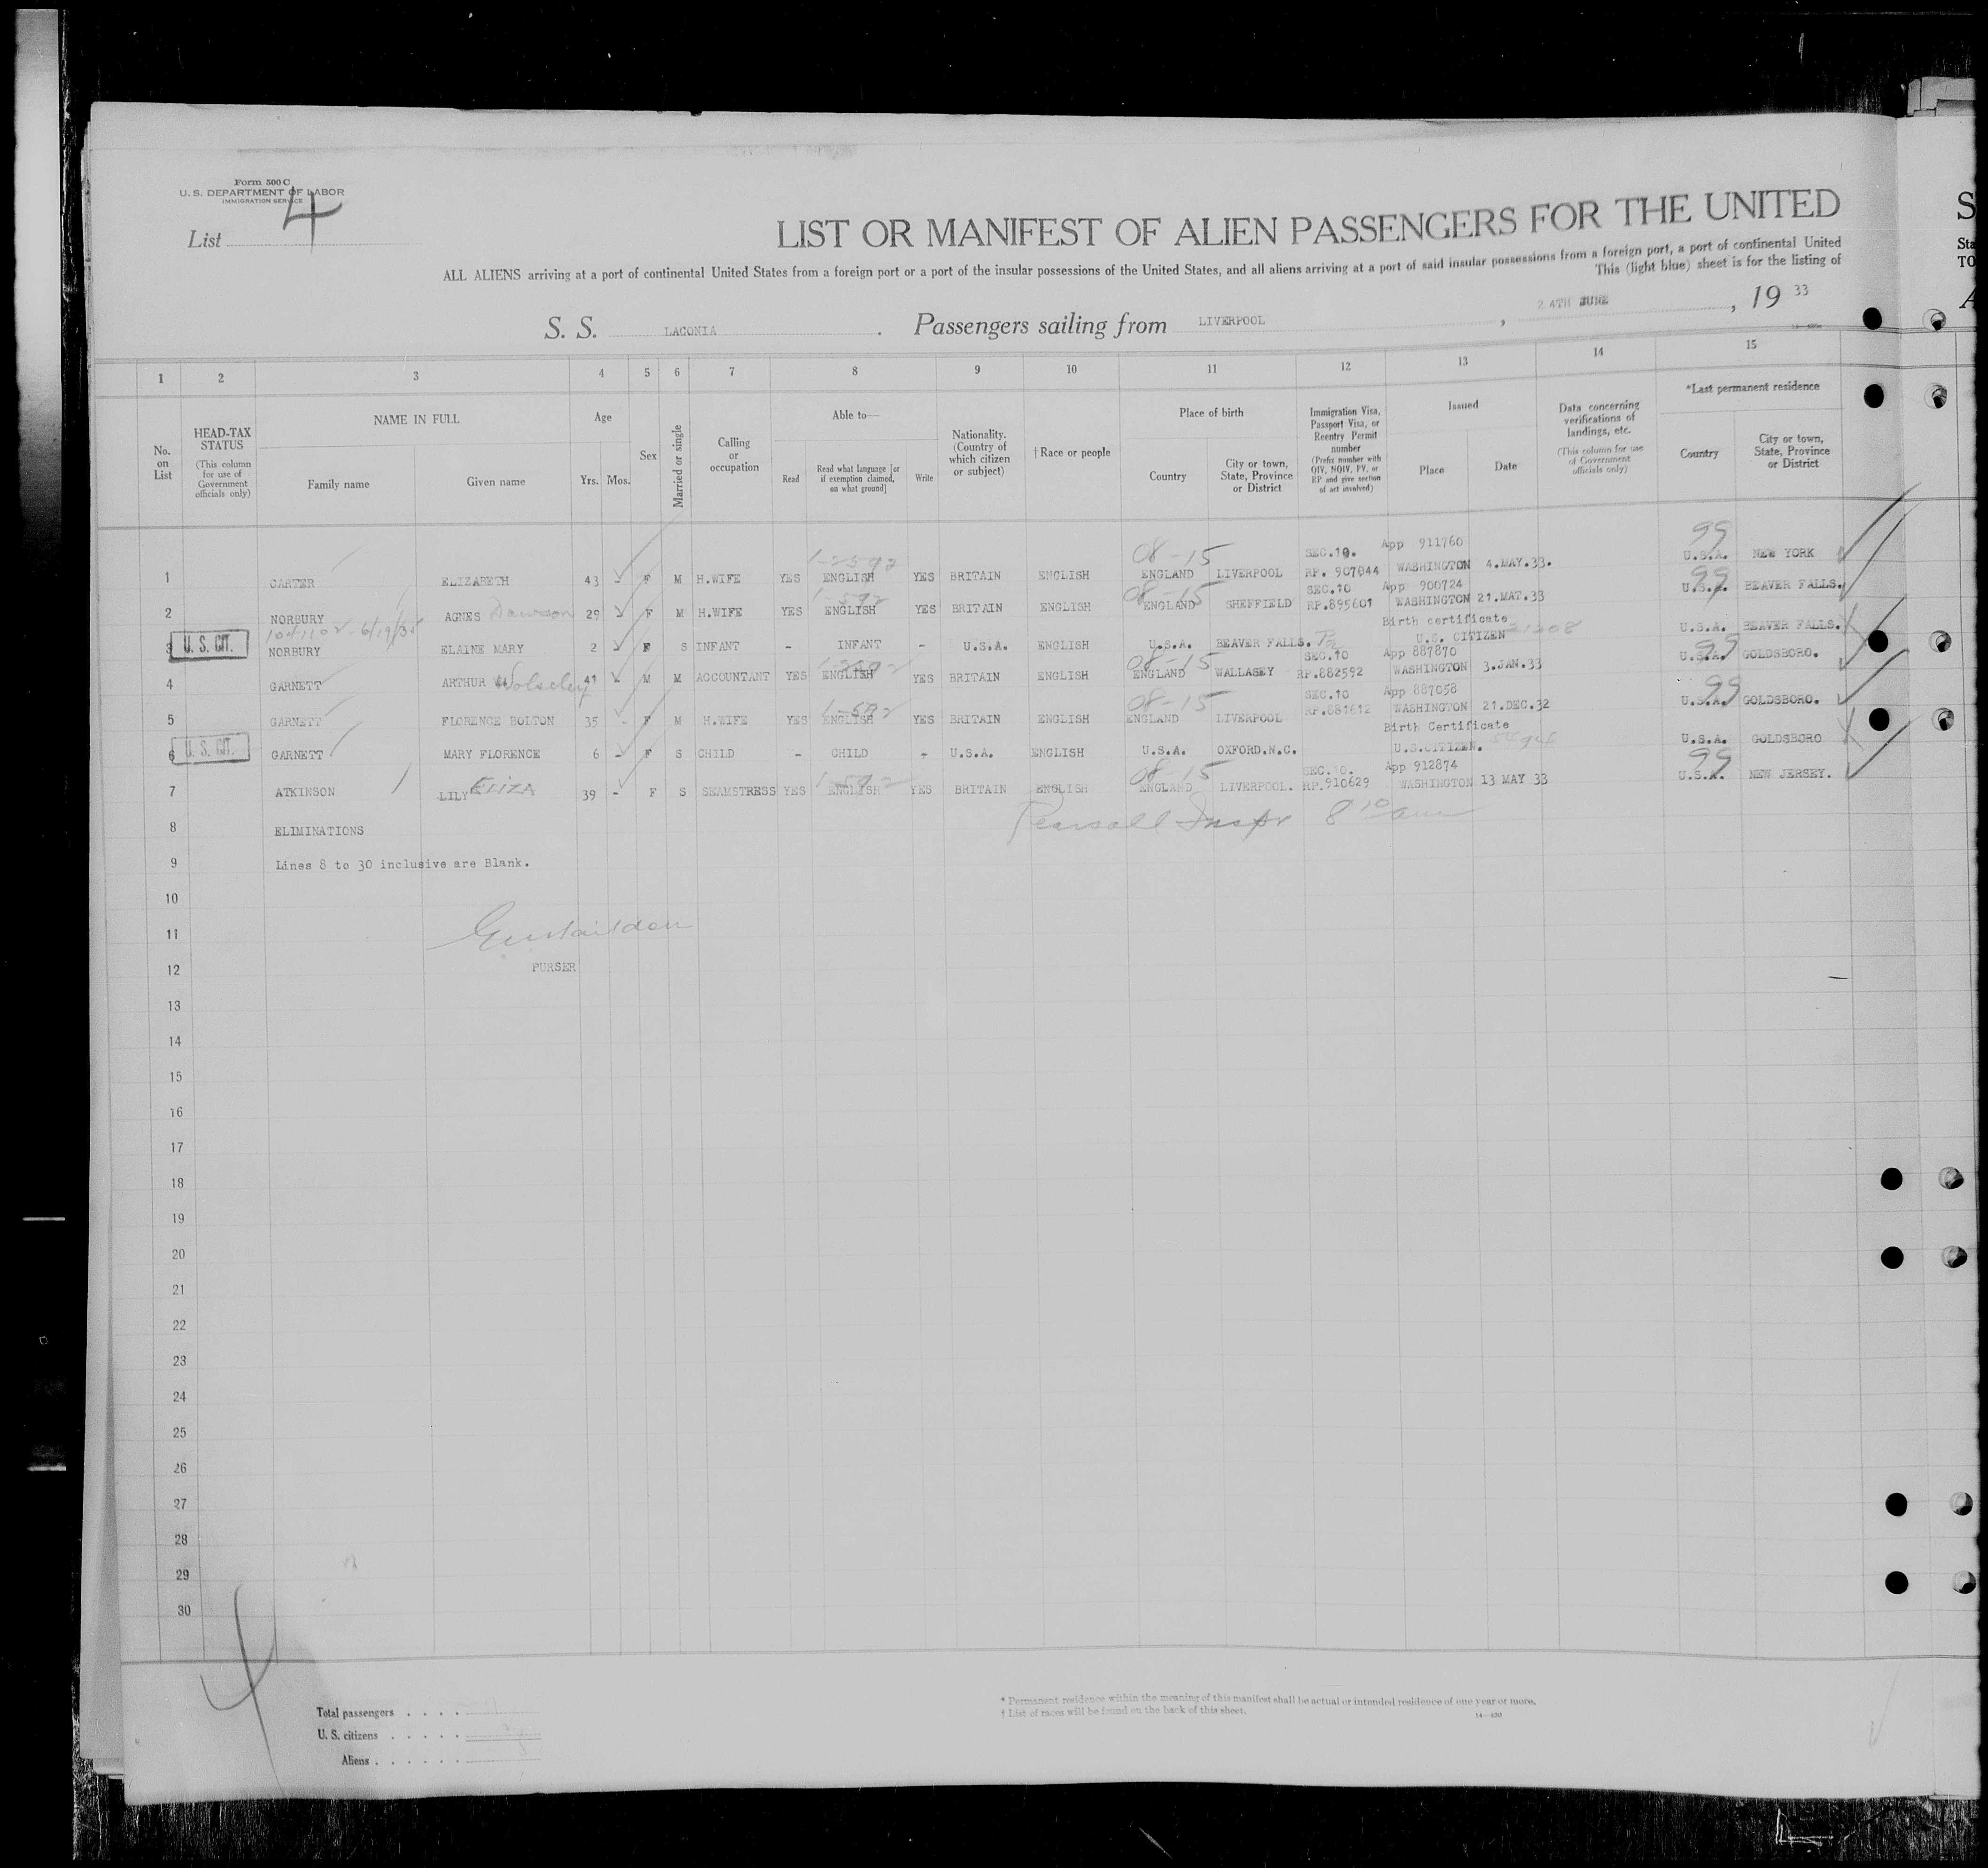 Form 500 C
U. S. DEPARTMENT OF LABOR
IMMIGRATION SERVICE
List 4
LIST OR MANIFEST OF ALIEN PASSENGERS FOR THE UNITED
ALL ALIENS arriving at a port of continental United States from a foreign port or a port of the insular possessions of the United States, and all aliens arriving at a port of said insular possessions from a foreign port, a port of continental United
This (light blue) sheet is for the listing of
S. S. LACONIA. Passengers sailing from LIVERPOOL, 24TH JUNE, 19 33
1 2 3 4 5 6 7 8 9 10 11 12 13 14 15
No. on List
HEAD-TAX STATUS
(This column for use of Government officials only)
NAME IN FULL
Family name
Given name
Age
Yrs. Mos.
Sex
Married or single
Calling or occupation
Able to—
Read
Read what language [or if exemption claimed, on what ground]
Write
Nationality. (Country of which citizen or subject)
†Race or people
Place of birth
Country
City or town, State, Province or District
Immigration Visa, Passport Visa, or Reentry Permit number
(Prefix number with QIV, NQIV, PV, or RP and give section of act involved)
Issued
Place
Date
Data concerning verifications of landings, etc.
(This column for use of Government officials only)
*Last permanent residence
Country
City or town, State, Province or District
1 CARTER ELIZABETH 43 - F M H.WIFE YES ENGLISH YES BRITAIN ENGLISH 08-15 ENGLAND LIVERPOOL SEC.10. RP. 907044 App 911760 WASHINGTON 4.MAY.33. 99 U.S.A. NEW YORK
2 NORBURY AGNES Dawson 29 - F M H.WIFE YES 1-592 ENGLISH YES BRITAIN ENGLISH 08-15 ENGLAND SHEFFIELD SEC.10 RP.895601 App 900724 WASHINGTON 21.MAT.33 99 U.S.A. BEAVER FALLS.
3 U. S. CIT. NORBURY ELAINE MARY 2 - F S INFANT - INFANT - U.S.A. ENGLISH U.S.A. BEAVER FALLS. Birth certificate U.S. CITIZEN U.S.A. BEAVER FALLS.
4 GARNETT ARTHUR Wolseley 41 - M M ACCOUNTANT YES ENGLISH YES BRITAIN ENGLISH 08-15 ENGLAND WALLASEY SEC.10 RP.882592 App 887870 WASHINGTON 3.JAN.33 99 U.S.A. GOLDSBORO.
5 GARNETT FLORENCE BOLTON 35 - F M H.WIFE YES 1-592 ENGLISH YES BRITAIN ENGLISH 08-15 ENGLAND LIVERPOOL SEC.10 RP.881612 App 887058 WASHINGTON 21.DEC.32 99 U.S.A. GOLDSBORO.
6 U. S. CIT. GARNETT MARY FLORENCE 6 - F S CHILD - CHILD - U.S.A. ENGLISH U.S.A. OXFORD.N.C. Birth Certificate U.S.CITIZEN. U.S.A. GOLDSBORO
7 ATKINSON LILY ELIZA 39 - F S SEAMSTRESS YES 1-592 ENGLISH YES BRITAIN ENGLISH 08-15 ENGLAND LIVERPOOL. SEC.10. RP.910629 App 912874 WASHINGTON 13 MAY 33 99 U.S.A. NEW JERSEY.
8 ELIMINATIONS Pearsall Inspr 8 10 am
9 Lines 8 to 30 inclusive are Blank.
10
11
12 PURSER
13
14
15
16
17
18
19
20
21
22
23
24
25
26
27
28
29
30
Total passengers
U. S. citizens
Aliens
* Permanent residence within the meaning of this manifest shall be actual or intended residence of one year or more.
† List of races will be found on the back of this sheet.